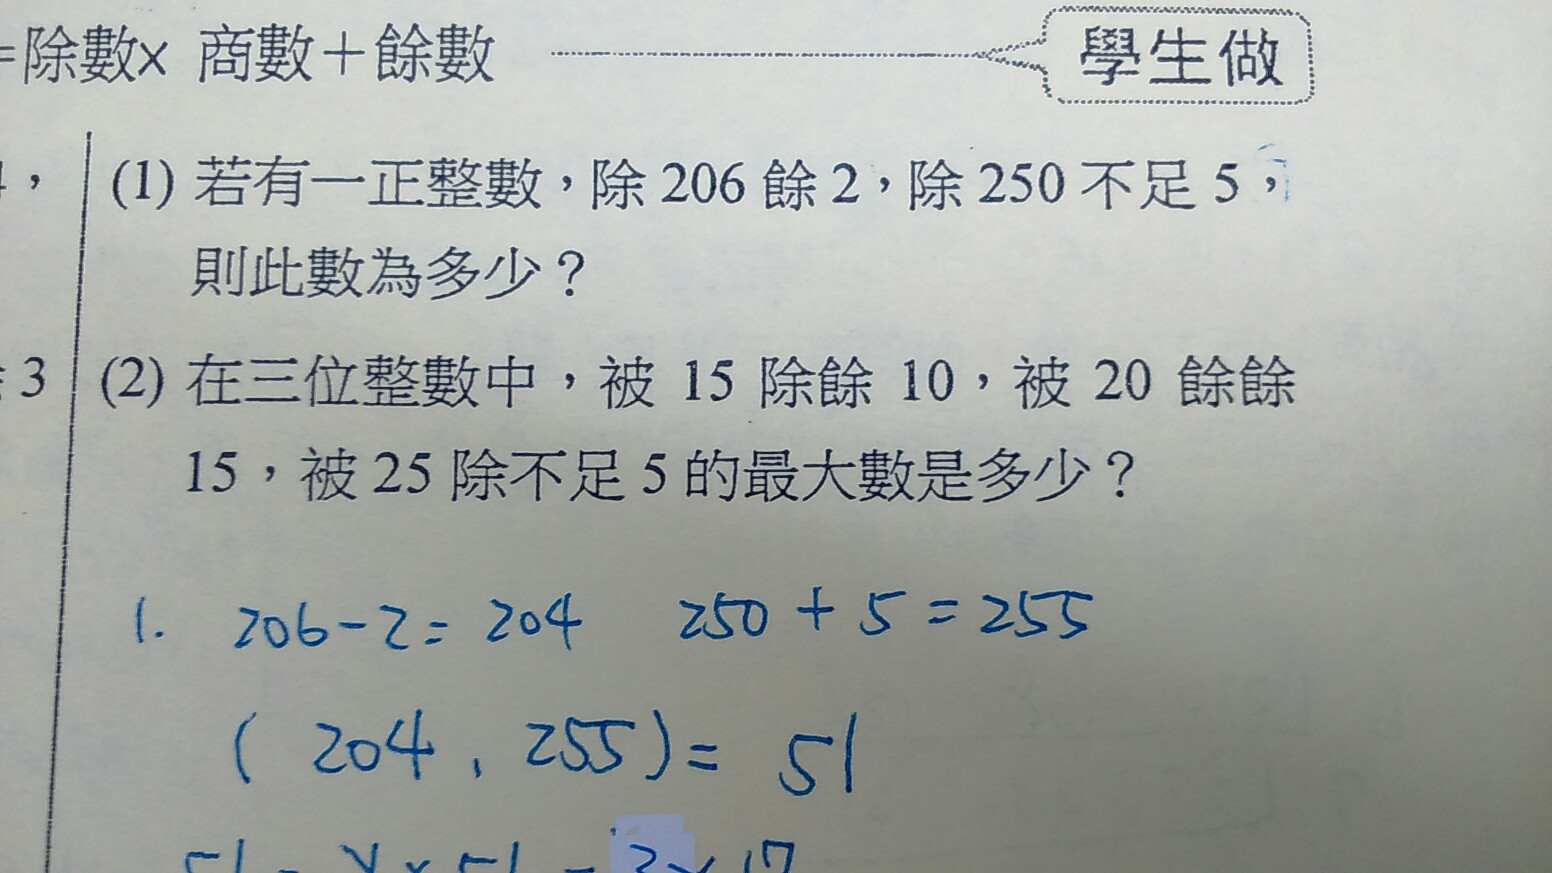 =除數× 商數＋餘數
學生做
，
(1) 若有一正整數，除 206 餘 2，除 250 不足 5，
則此數為多少？
3
(2) 在三位整數中，被 15 除餘 10，被 20 餘餘
15，被 25 除不足 5 的最大數是多少？
1. 206-2= 204 250 + 5 = 255
( 204 , 255 ) = 51